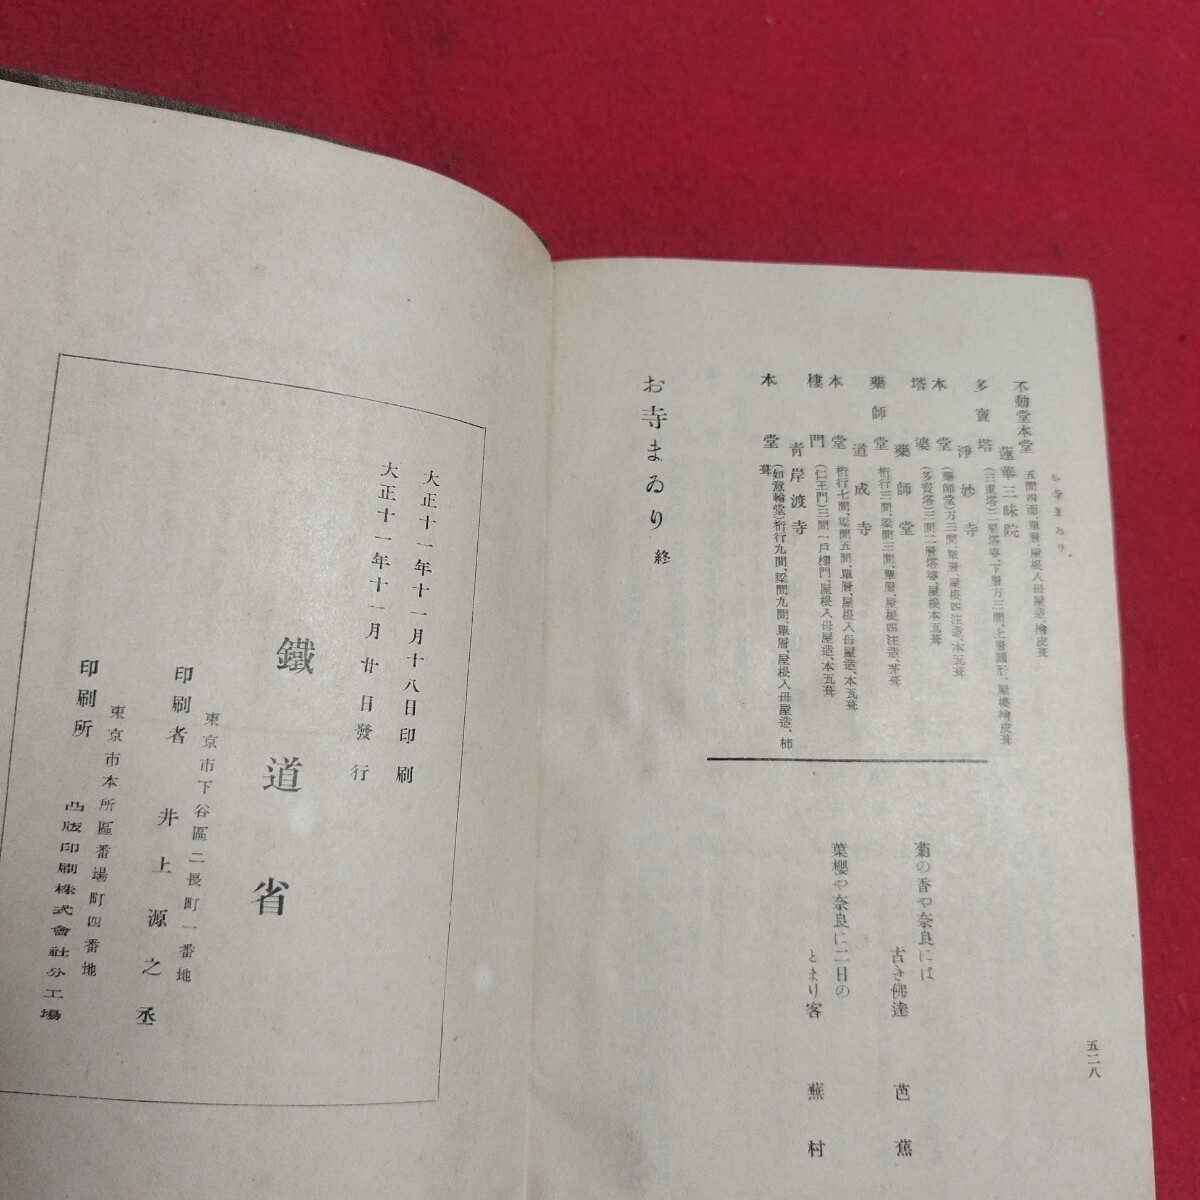 お寺まゐり
五二八
不動堂本堂 五間四面、單層、屋根入母屋造、檜皮葺
蓮華三昧院
多寶塔 (三重塔)二層塔婆、下層方三間、上層圓形、屋根檜皮葺
淨妙寺
本堂 (藥師堂)方三間、單層、屋根四注造、本瓦葺
塔婆 (多寶塔)三間二層塔婆、屋根本瓦葺
藥師堂
藥師堂 桁行三間、梁間三間、單層、屋根四注造、茅葺
道成寺
本堂 桁行七間、梁間五間、單層、屋根入母屋造、本瓦葺
樓門 (仁王門)三間一戸樓門、屋根入母屋造、本瓦葺
青岸渡寺
本堂 (如意輪堂)桁行九間、梁間九間、單層、屋根入母屋造、柿
葺
お寺まゐり 終
菊の香や奈良には
古き佛達 芭蕉
葉櫻や奈良に二日の
とまり客 蕪村
大正十一年十一月十八日印刷
大正十一年十一月廿日發行
鐵道省
東京市下谷區二長町一番地
印刷者 井上源之丞
東京市本所區番場町四番地
印刷所 凸版印刷株式會社分工場